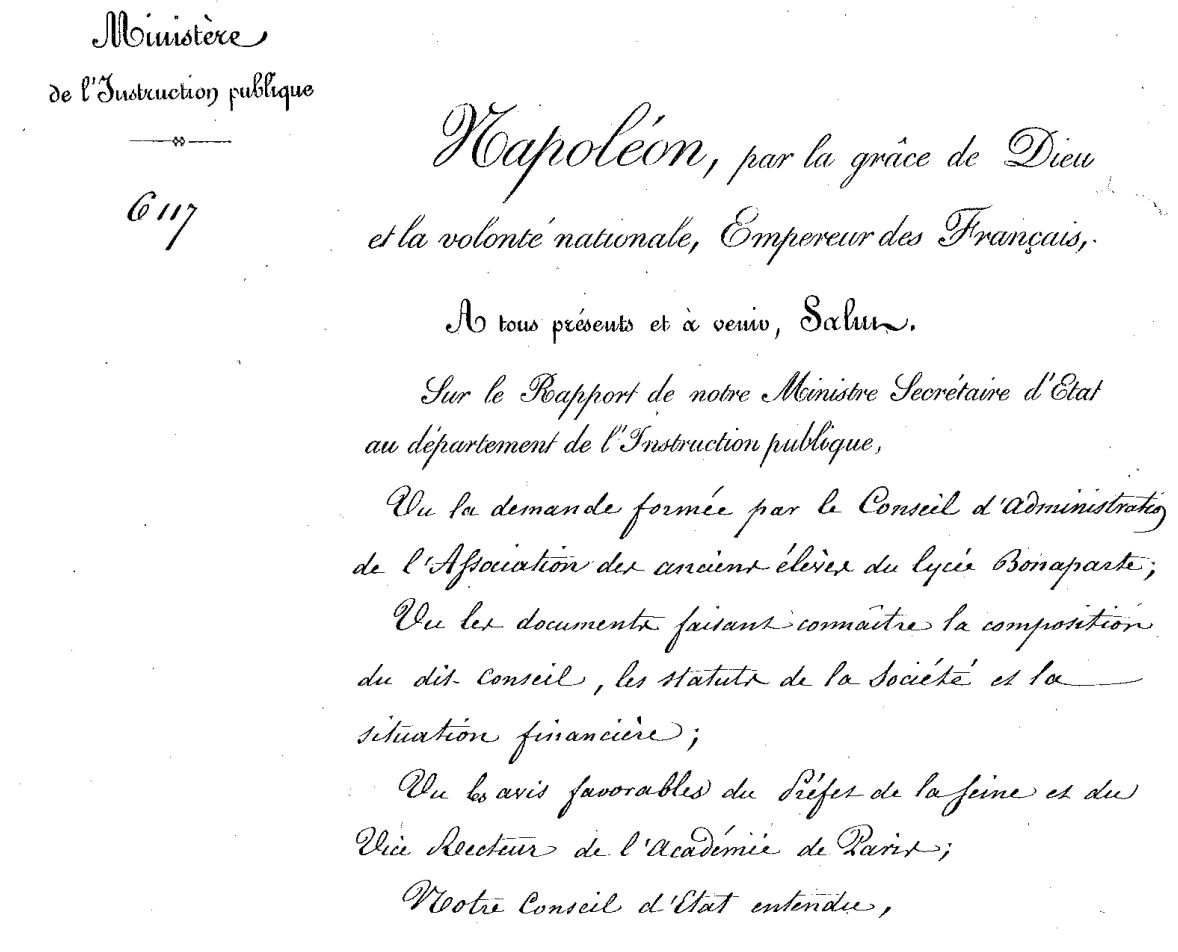 Ministère
de l'Instruction publique
6117
Napoléon, par la grâce de Dieu
et la volonté nationale, Empereur des Français,
A tous présents et à venir, Salut.
Sur le Rapport de notre Ministre Secrétaire d'Etat
au département de l'Instruction publique,
Vu la demande formée par le Conseil d'administration
de l'Association des anciens élèves du lycée Bonaparte;
Vu les documents faisant connaître la composition
du dit Conseil, les statuts de la Société et la
situation financière;
Vu les avis favorables du Préfet de la Seine et du
Vice Recteur de l'Académie de Paris;
Notre Conseil d'Etat entendu,